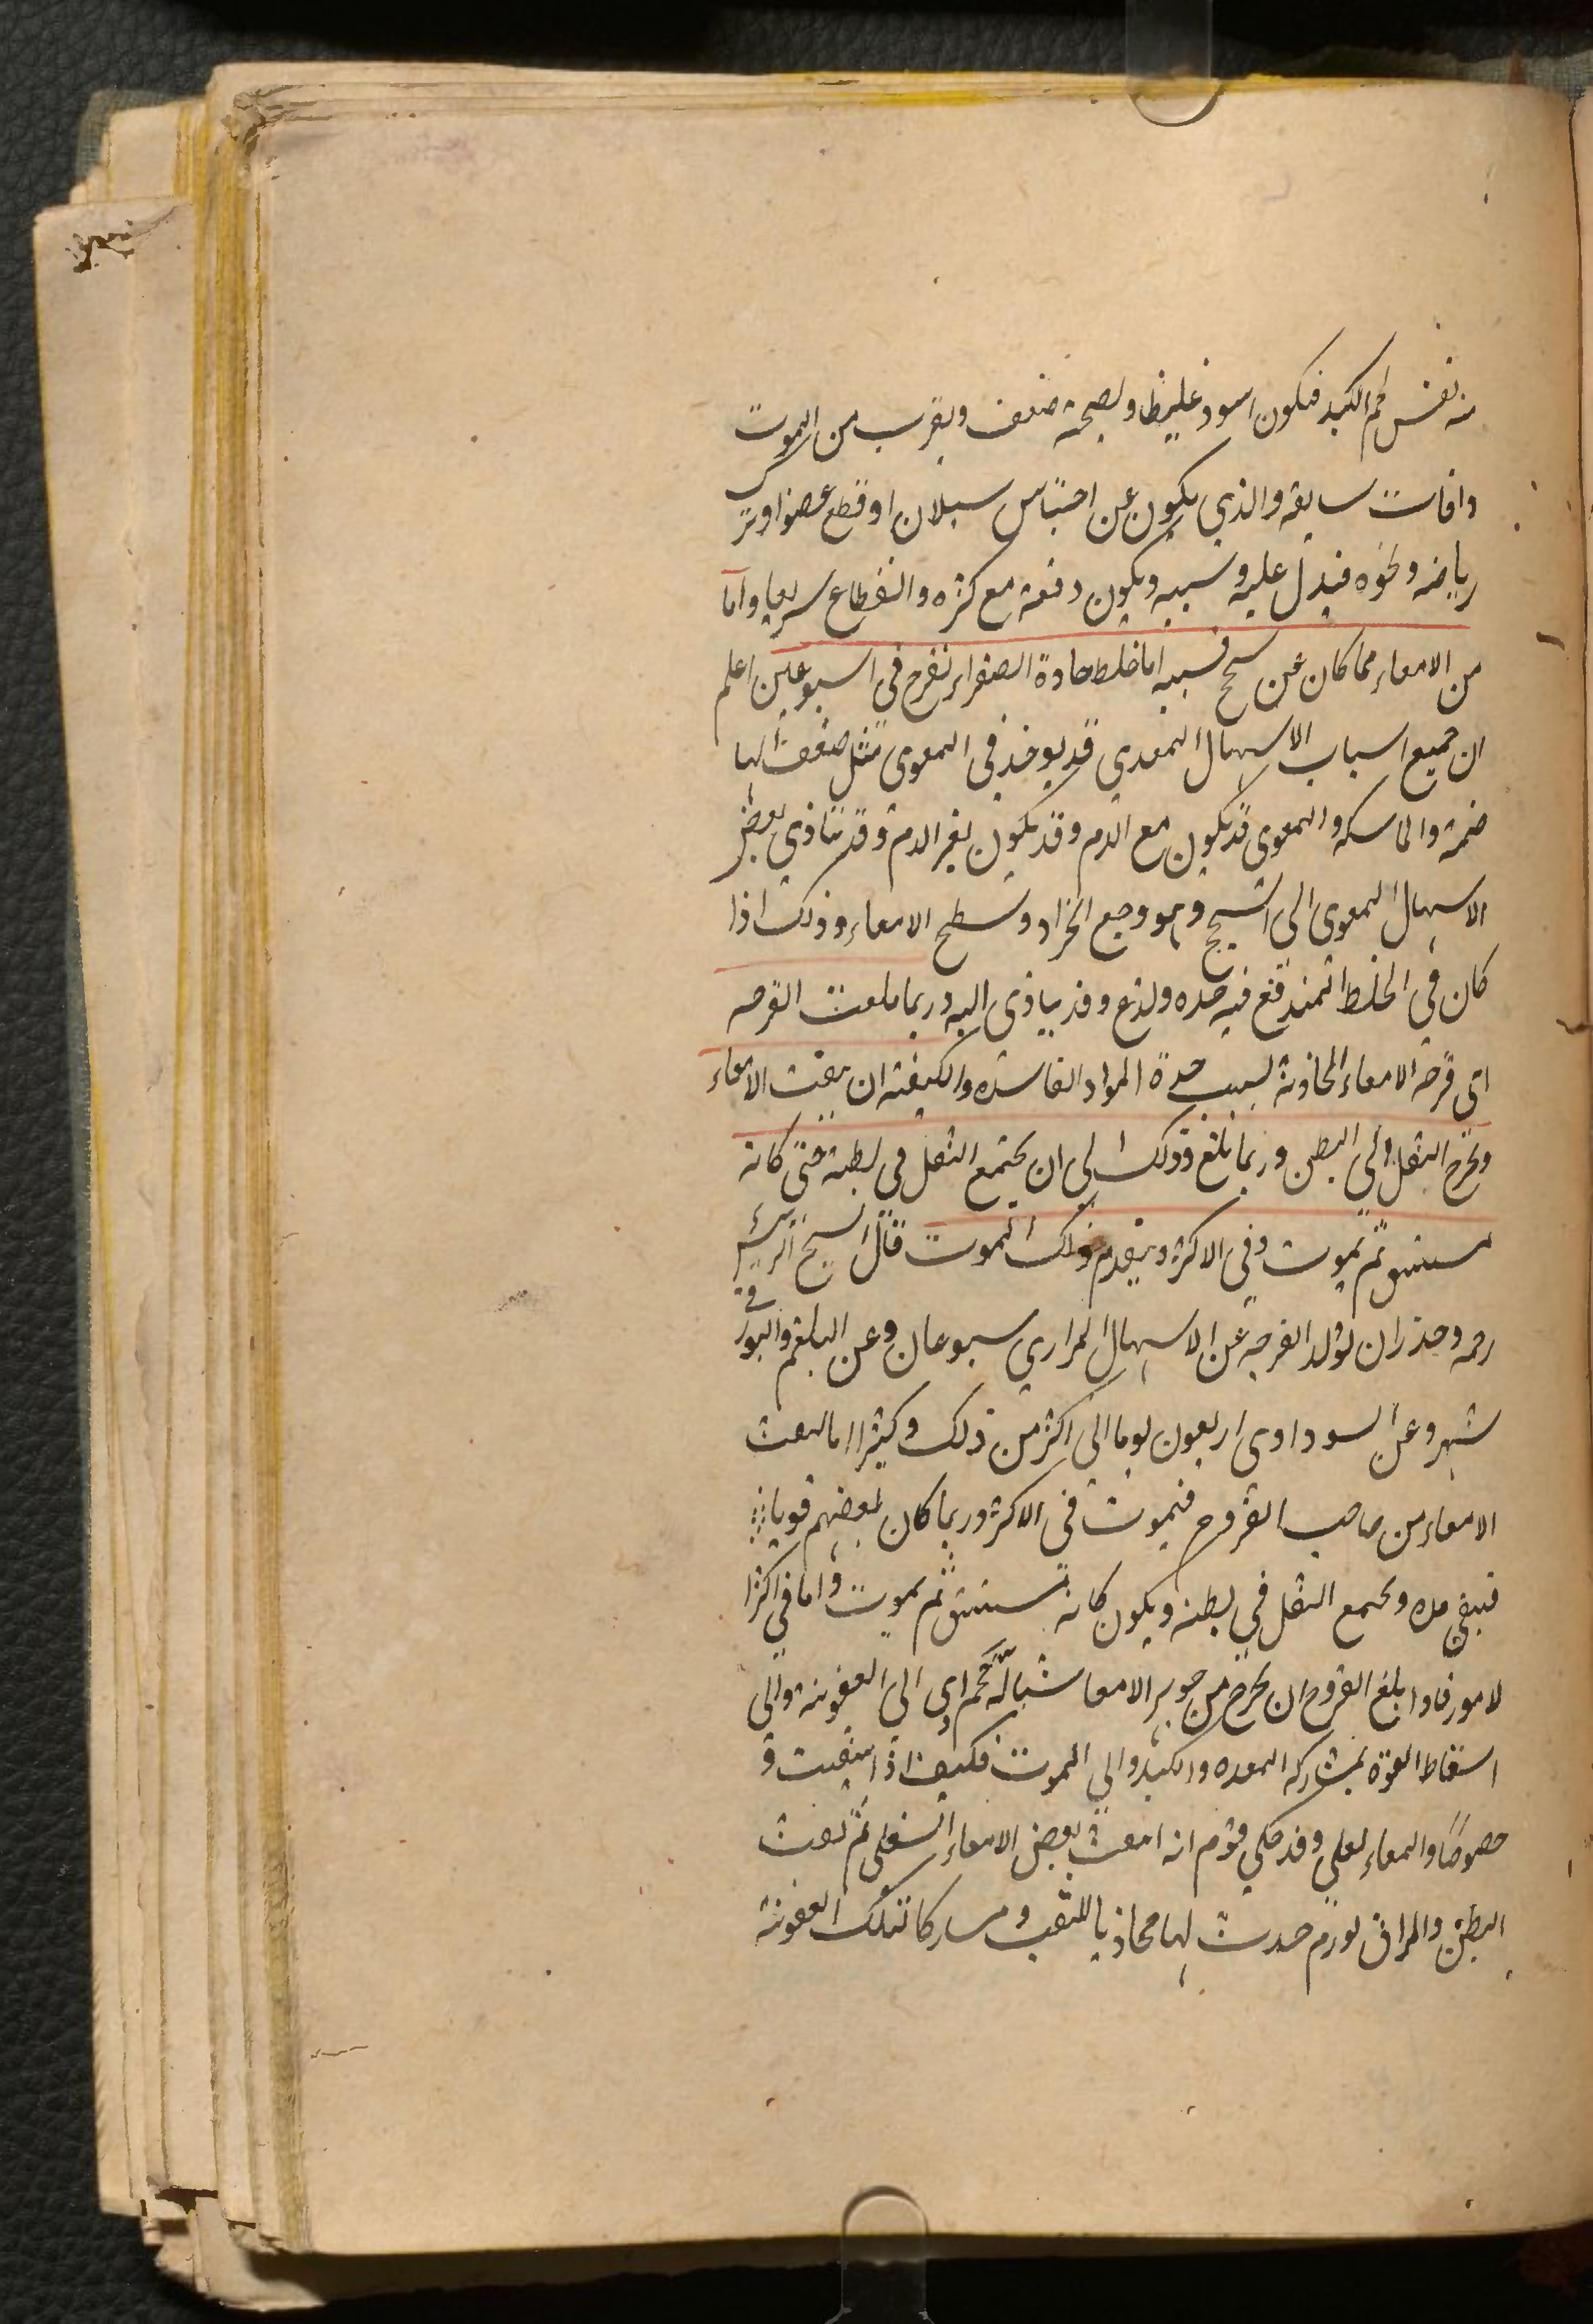 من نفس لحم الكبد فيكون اسود غليظا ويصحبه ضعف ويقرب من الموت
وافات سابقه والذي يكون عن احتباس سيلان او قطع عضو او ترك
رياضه ونحوه فيدل عليه وسببه ويكون دفعة مع كثره وانقطاع سريعا واما
من الامعاء مما كان عن سحج فسببه اما خلط حادة الصفراء تقرح في اسبوعين اعلم
ان جميع اسباب الاسهال المعدي قد يوخذ في المعوي مثل ضعف الها
ضمة والماسكه والمعوي قد يكون مع الدم وقد يكون بغير الدم وقد يتاذي بعض
الاسهال المعوي الى السحج وهو وجع انجراد وسطح الامعاء وذلك اذا
كان في الخلط المندفع فيه حده ولذع وقد يتاذى اليه وربما بلغت القرحه
اى قرحه الامعاء الحادثة بسبب حدة المواد الفاسده والكيفيته ان يثقب الامعاء
ويخرج الثفل الى البطن وربما بلغ وذلك الى ان يجتمع الثفل في بطنه حتى كانه
مستسق ثم يموت وفي الاكثر ويتقدم ذلك الموت قال الشيخ الرئيس
رحمه وحذر ان تولد القرحه عن الاسهال المراري سبوعان وعن البلغم والبورقي
شهر وعن السوداوى اربعون يوما الى اكثر من ذلك وكثيرا ما انثقبت
الامعاء من صاحب القروح فيموت في الاكثر وربما كان بعضهم قويا
فيبقى مده ويجتمع الثفل في بطنه ويكون كانه مستسق ثم يموت واما في اكثر ا
لامور فاذا بلغ القروح ان يخرج من جوهر الامعا شيا له حجم ادى الى العفونة والى
اسقاط القوة بمشاركه المعده والكبد والى الموت فكيف اذا انثقبت و
خصوصا والمعاء لعلي وقد حكي قوم انه انثقبت بعض الامعاء السفلى ثم ثقبت
البطن والمراق لورم حدث لها محاذيا للثقب ومشاركا لتلك العفونة